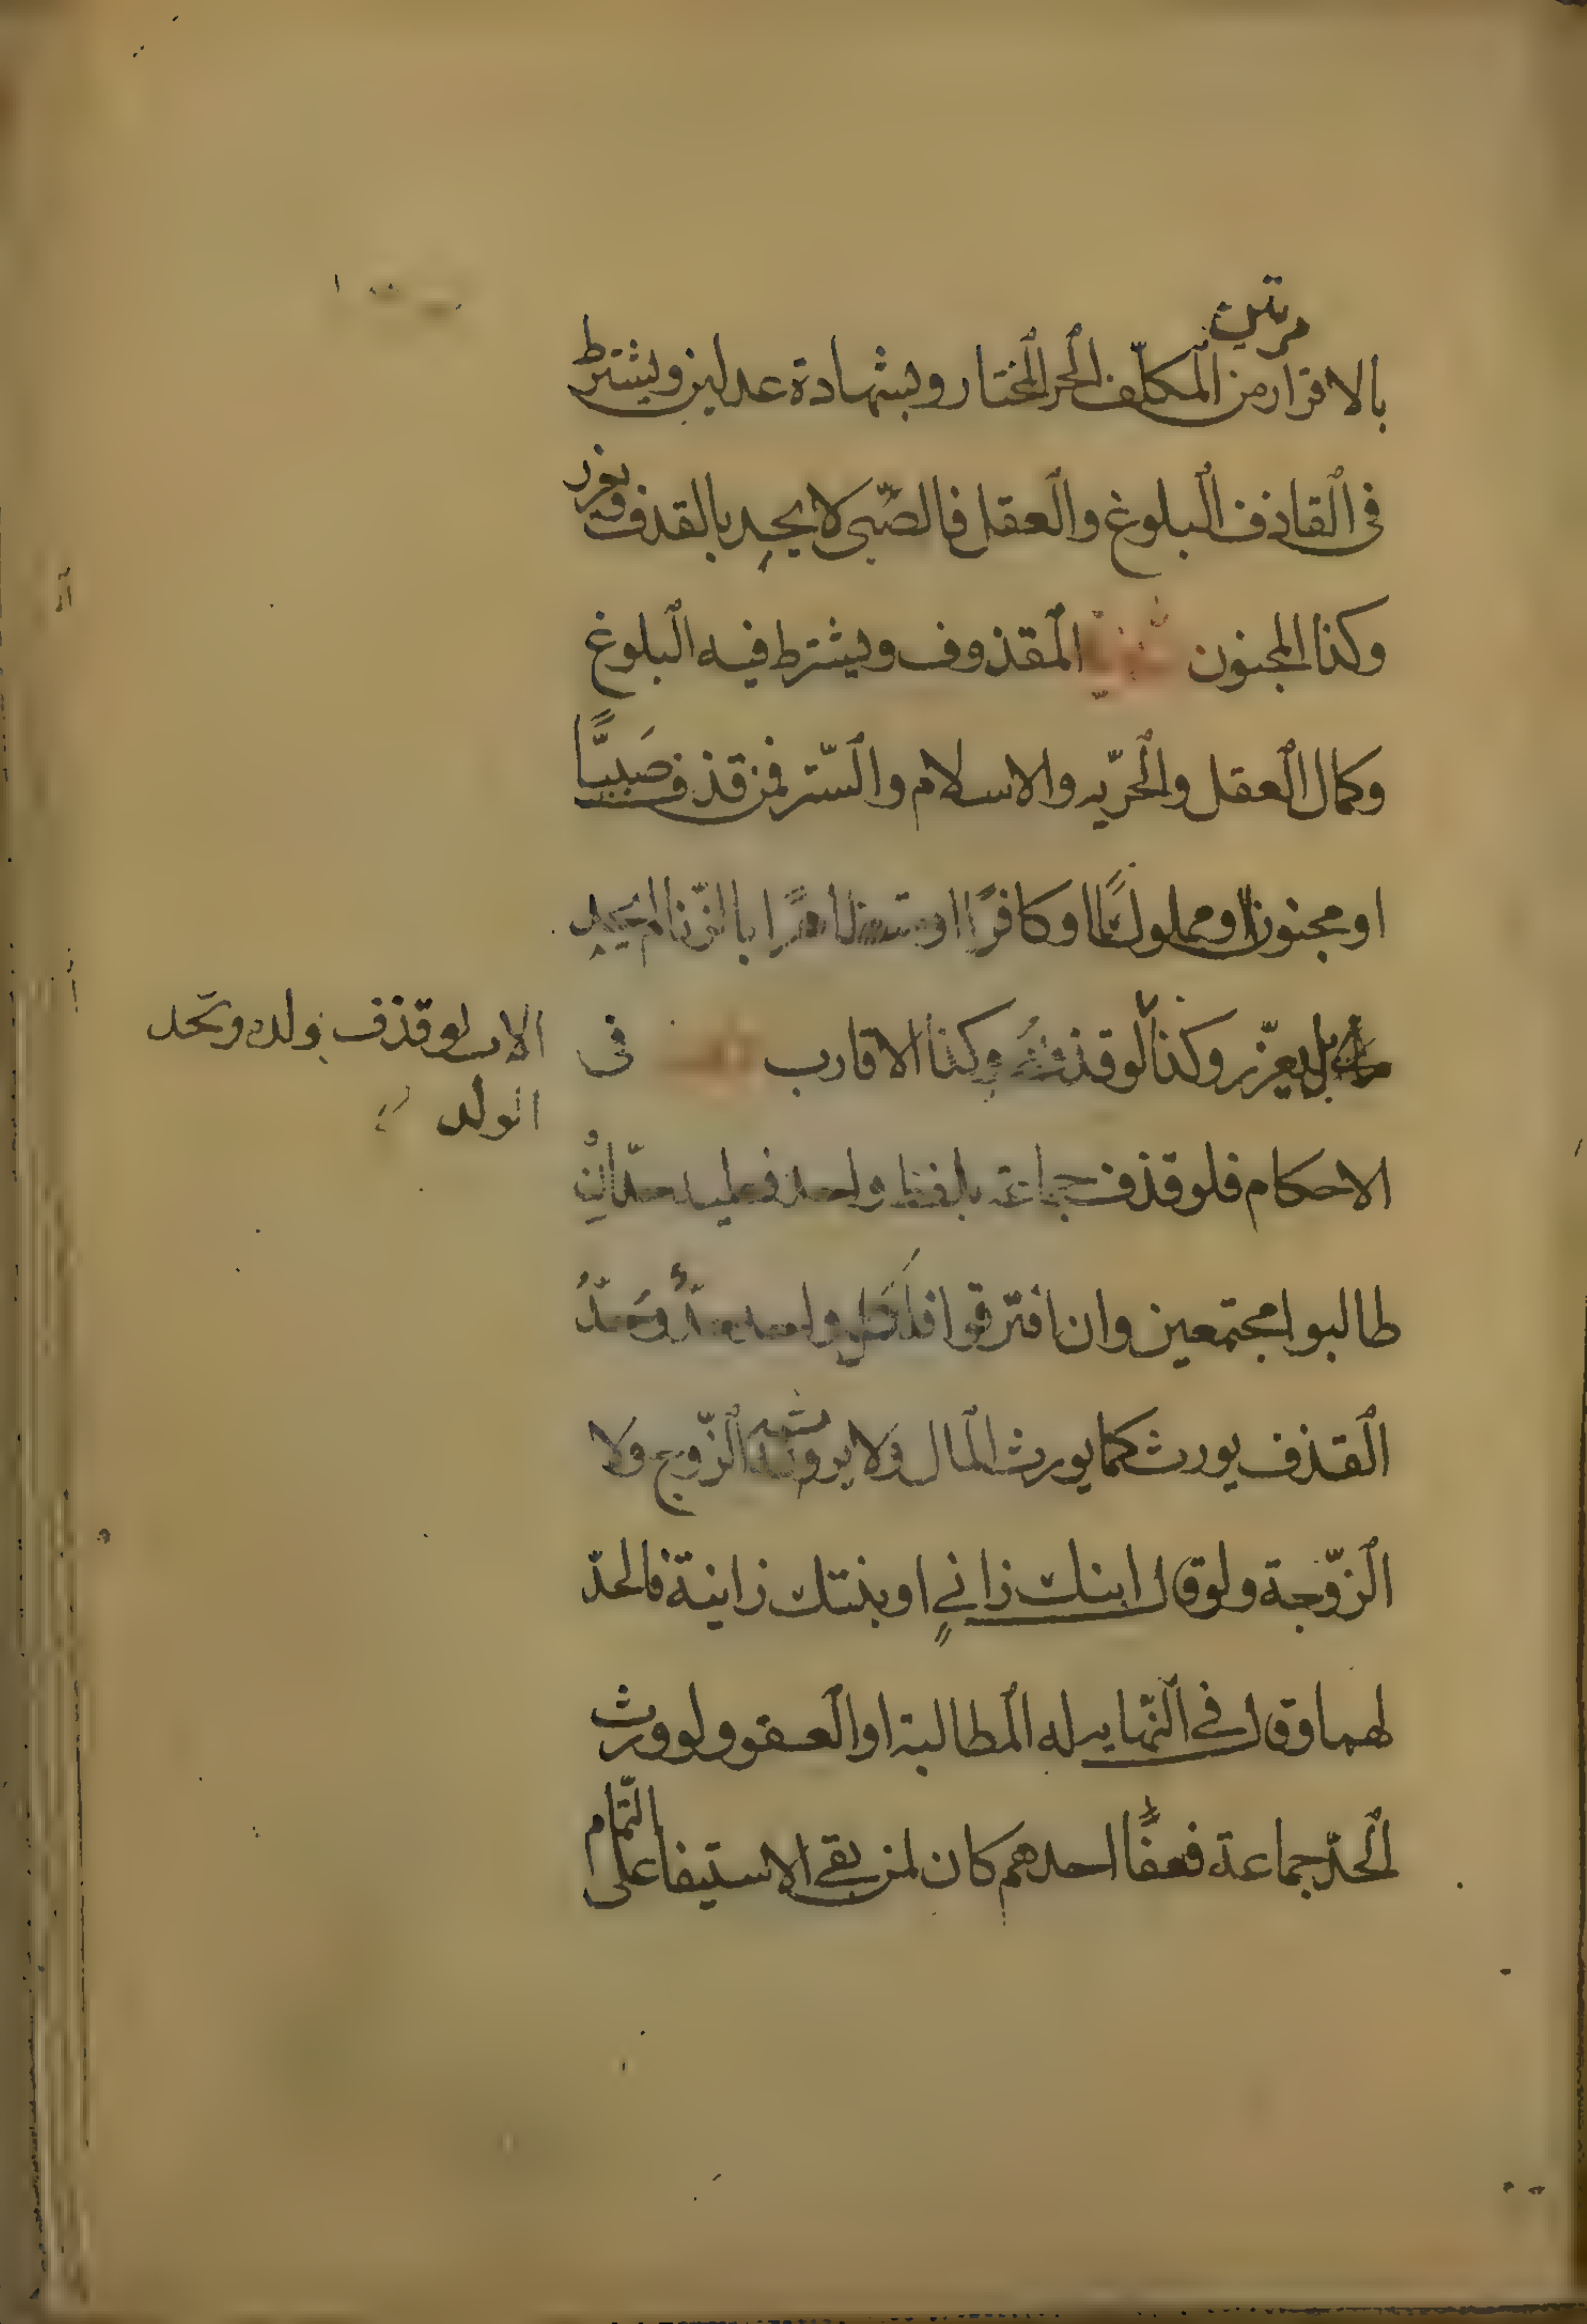 مرتين
بالاقرار من المكلّف الحر المختار وبشهادة عدلين ويشترط
فى القاذف البلوغ والعقل فالصّبى لا يحد بالقذف ويعزر
وكذا المجنون المقذوف ويشترط فيه البلوغ
وكمال العقل والحرّيه والاسلام والسّتر فمن قذف صَبيًّا
او مجنونا او مملوكًا او كافرًا او متظاهرًا بالزّنا لم يحد
بل يعزّر وكذا لو قذف وكذا الاقارب فى
الاب لو قذف ولده وتحد
الولد
الاحكام فلو قذف جماعة بلفظ واحد فعليه حدّ ان
طالبوا مجتمعين وان افترقوا فلكل واحد حدّ وحَدّ
القذف يورث كما يورث المال ولا يرثه الزّوج ولا
الزّوجة ولو قال ابنك زاني او بنتك زانية فالحدّ
لهما وقال في النّهايه له المطالبة او العفو ولو ورث
الحدّ جماعة فعفا احدهم كان لمن بقى الاستيفا على التّمام